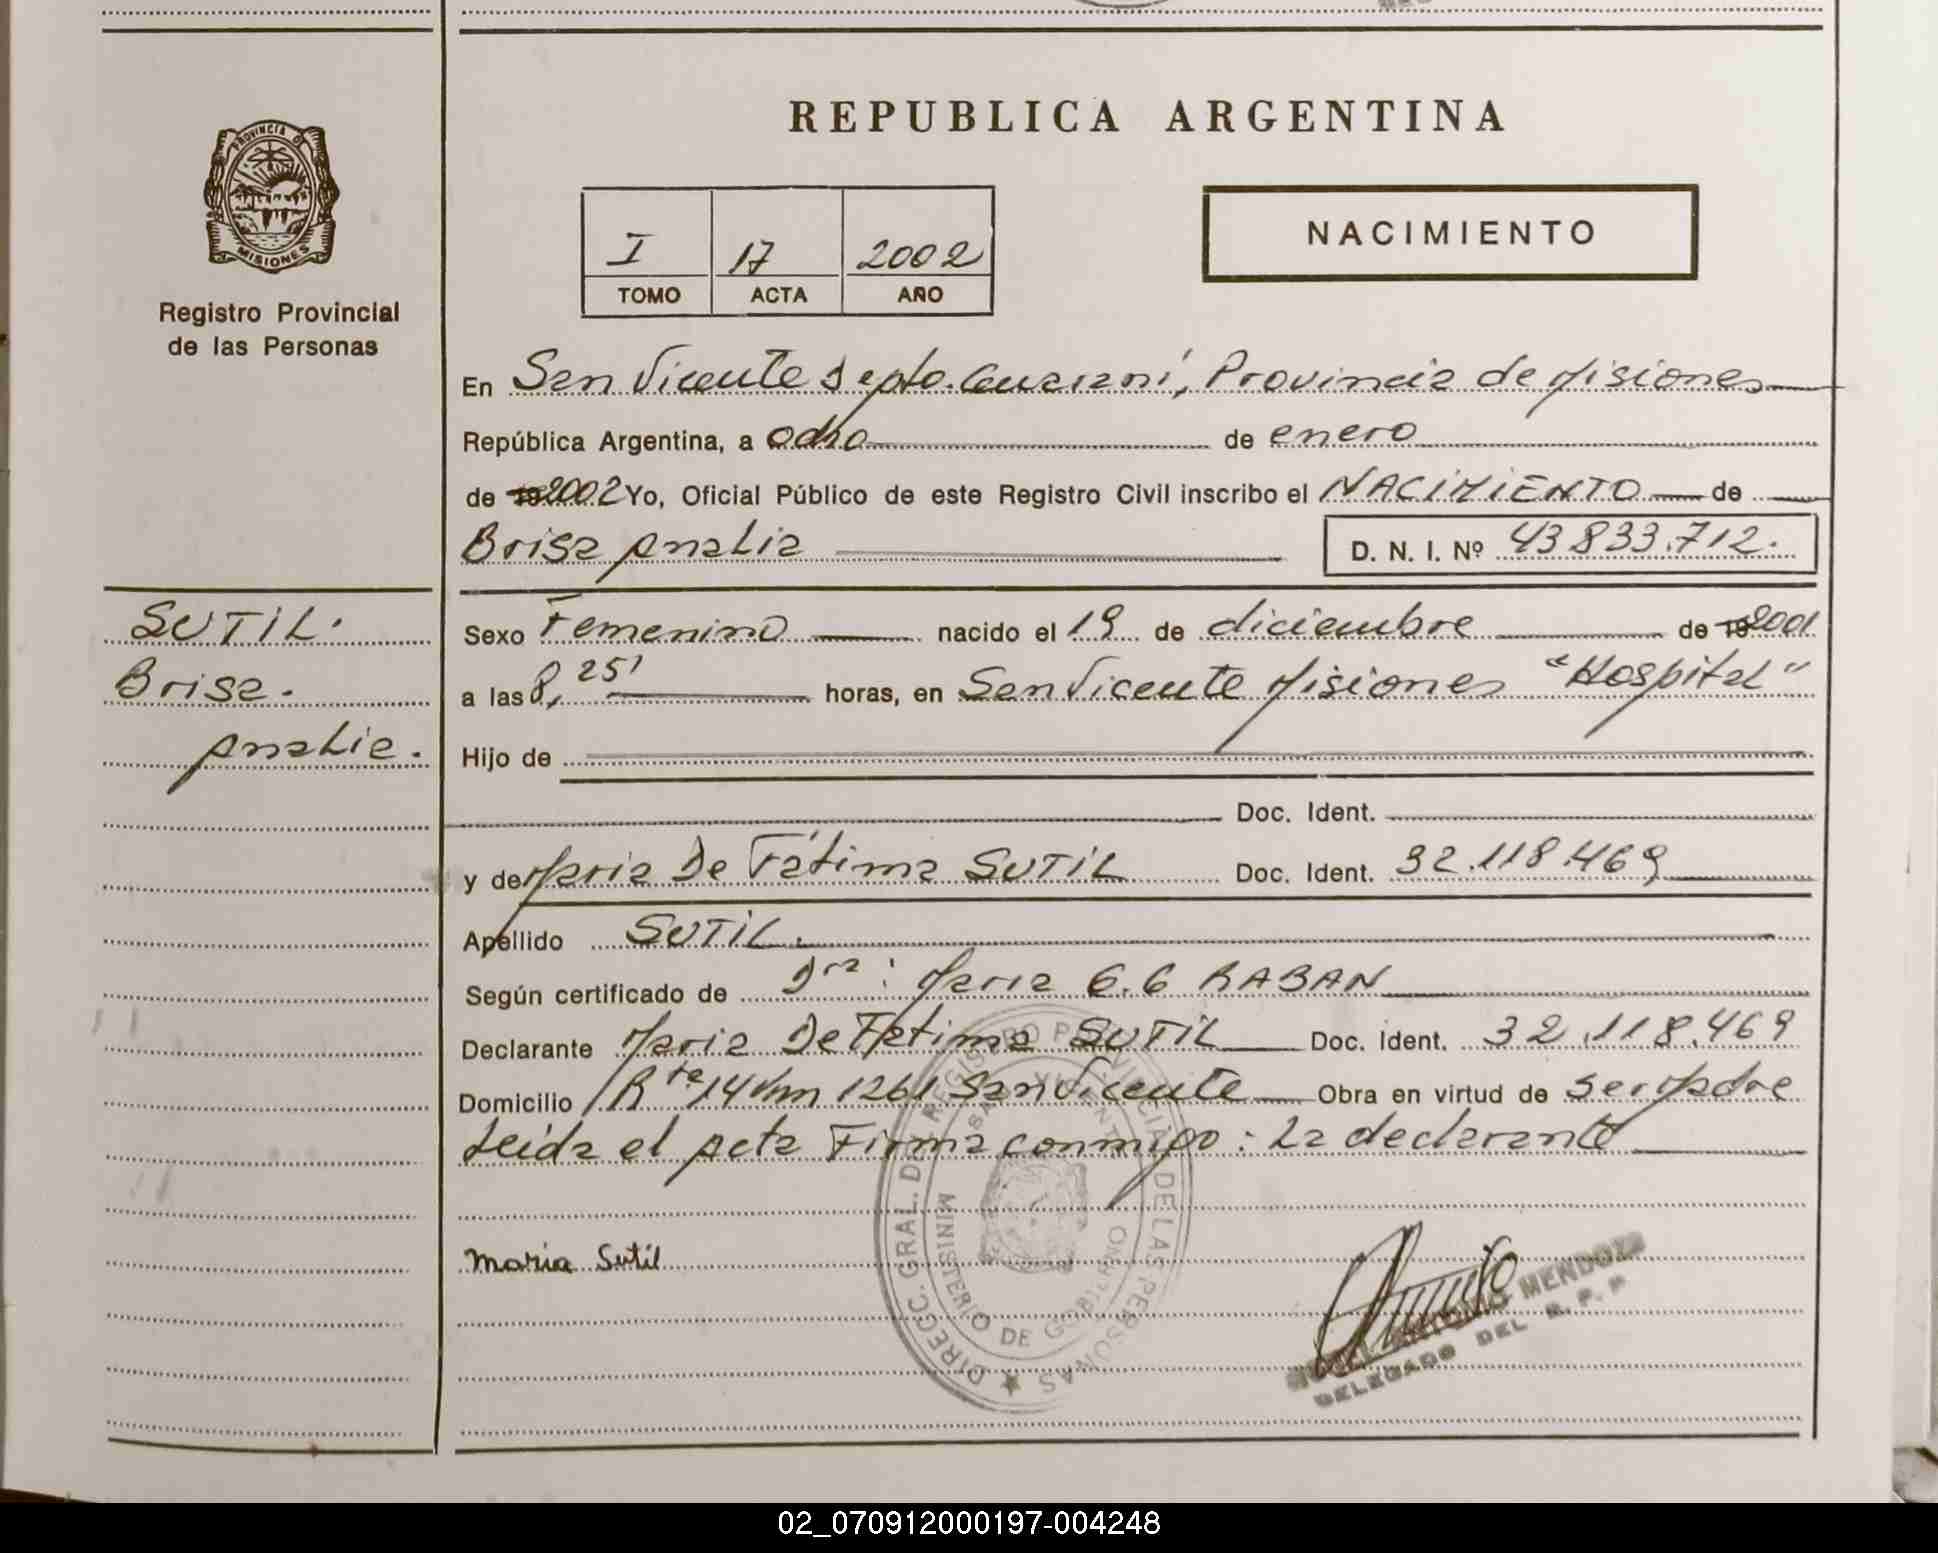 REPUBLICA ARGENTINA
PROVINCIA D
MISIONES
Registro Provincial
de las Personas
I 17 2002
TOMO ACTA AÑO
NACIMIENTO
En San Vicente Depto. Guaraní, Provincia de Misiones
República Argentina, a ocho de enero
de 19 2002 Yo, Oficial Público de este Registro Civil inscribo el NACIMIENTO de
Brisa Analia D. N. I. Nº 43 833.712.
SUTIL.
Brisa.
Analia.
Sexo Femenino nacido el 19 de diciembre de 19 2001
a las 8,25' horas, en San Vicente Misiones "Hospital"
Hijo de
Doc. Ident.
y de Maria De Fátima SUTIL Doc. Ident. 32.118.469
Apellido SUTIL.
Según certificado de Dra: Maria G.G RABAN
Declarante Maria De Fatima SUTIL Doc. Ident. 32.118.469
Domicilio Rta 14 km 1261 San Vicente Obra en virtud de ser Madre
Leída el Acta Firma conmigo: La declarante
Maria Sutil
DIRECC. GRAL. DEL REGISTRO PROVINCIAL DE LAS PERSONAS
MINISTERIO DE GOBIERNO
SAN VICENTE
ANTONIO MENDOZA
DELEGADO DEL R. P. P
02_070912000197-004248